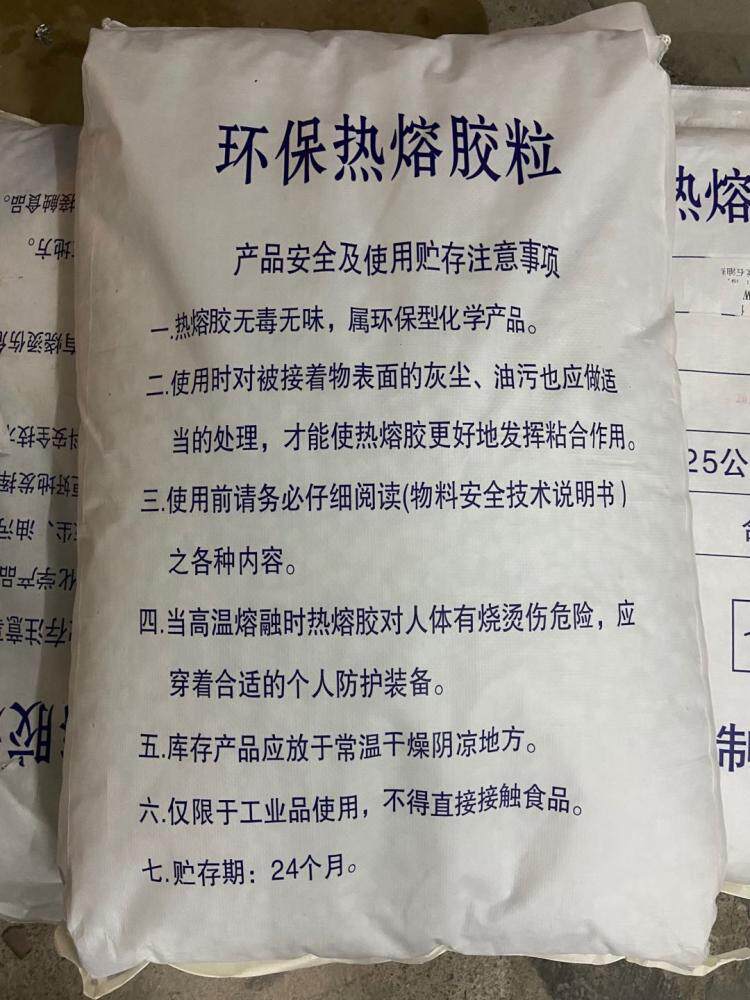 环保热熔胶粒
产品安全及使用贮存注意事项
一.热熔胶无毒无味，属环保型化学产品。
二.使用时对被接着物表面的灰尘、油污也应做适
当的处理，才能使热熔胶更好地发挥粘合作用。
三.使用前请务必仔细阅读(物料安全技术说明书)
之各种内容。
四.当高温熔融时热熔胶对人体有烧烫伤危险，应
穿着合适的个人防护装备。
五.库存产品应放于常温干燥阴凉地方。
六.仅限于工业品使用，不得直接接触食品。
七.贮存期：24个月。
热熔
25公
制
接触食品。
地方。
有烧烫伤危
安全技
好地发挥
尘、油污
化学产品
存注意
胶